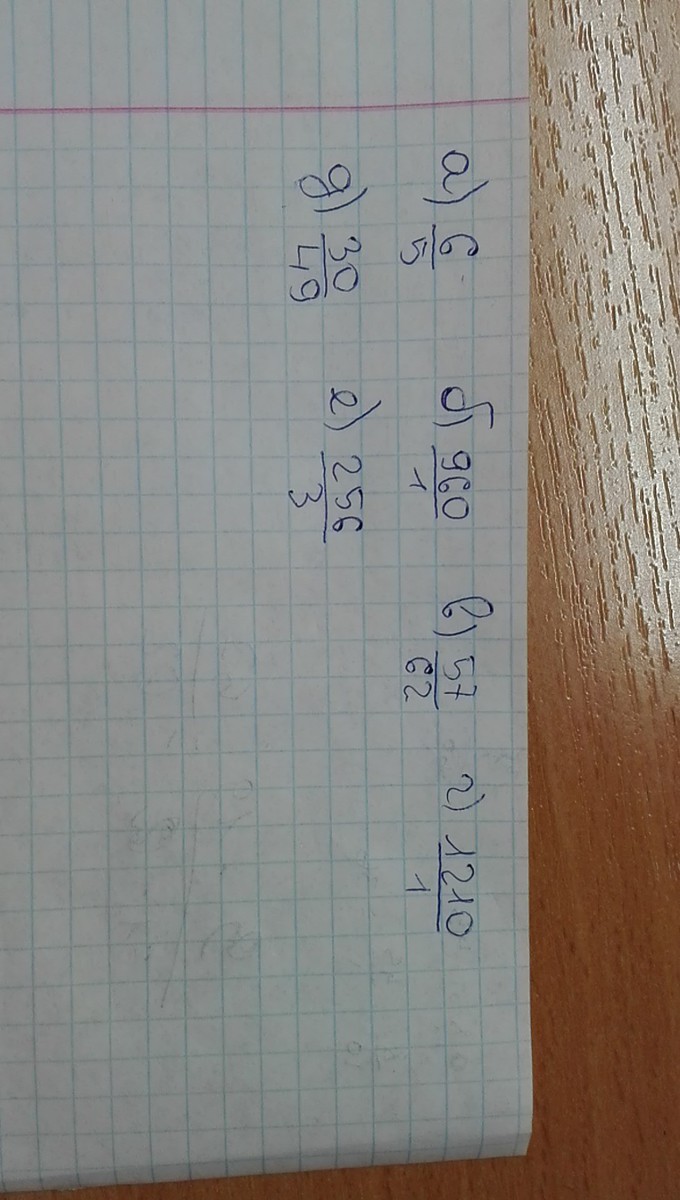 а) 6/5 б) 960/1 в) 57/62 г) 1210/1
д) 30/49 е) 256/3